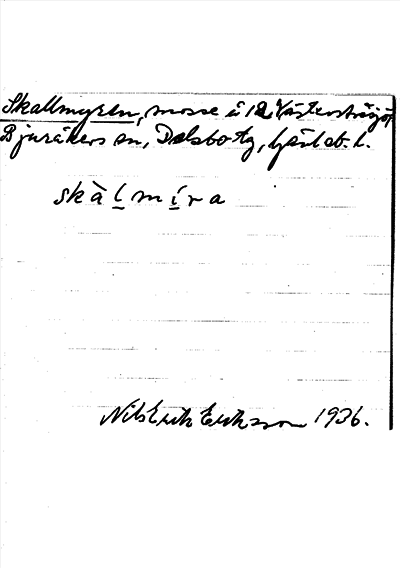 Skallmyren, mosse i 12 Västerstråsjö,
Bjuråkers sn, Delsbo tg, Gävleb. l.
skàl̲mí̲ra
Nils Erik Eriksson 1936.